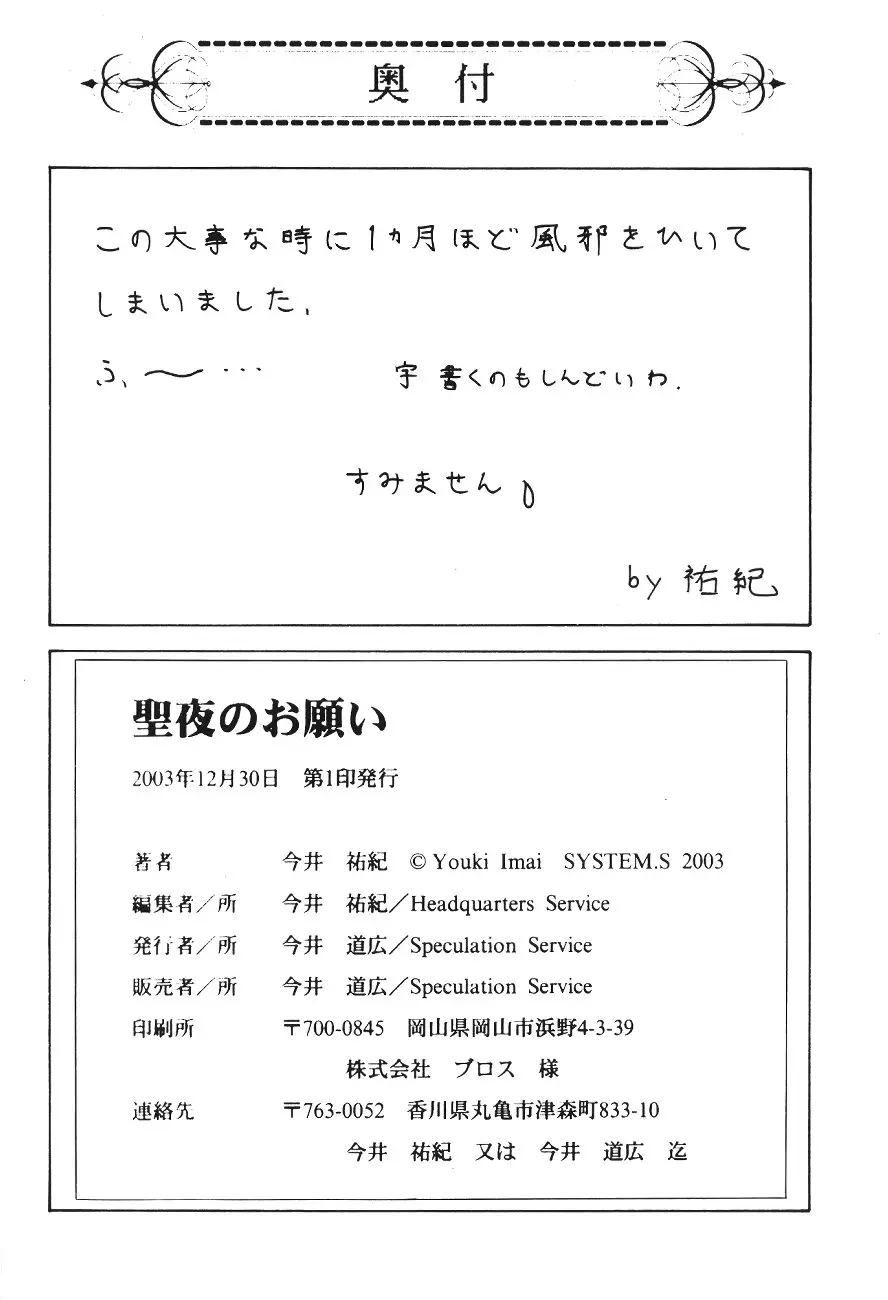 奥 付
この大事な時に1ヵ月ほど風邪をひいて
しまいました.
ふ、〜… 字書くのもしんどいわ.
すみません
by 祐紀
聖夜のお願い
2003年12月30日 第1印発行
著者 今井 祐紀 © Youki Imai SYSTEM.S 2003
編集者／所 今井 祐紀／Headquarters Service
発行者／所 今井 道広／Speculation Service
販売者／所 今井 道広／Speculation Service
印刷所 〒700-0845 岡山県岡山市浜野4-3-39
株式会社 ブロス 様
連絡先 〒763-0052 香川県丸亀市津森町833-10
今井 祐紀 又は 今井 道広 迄